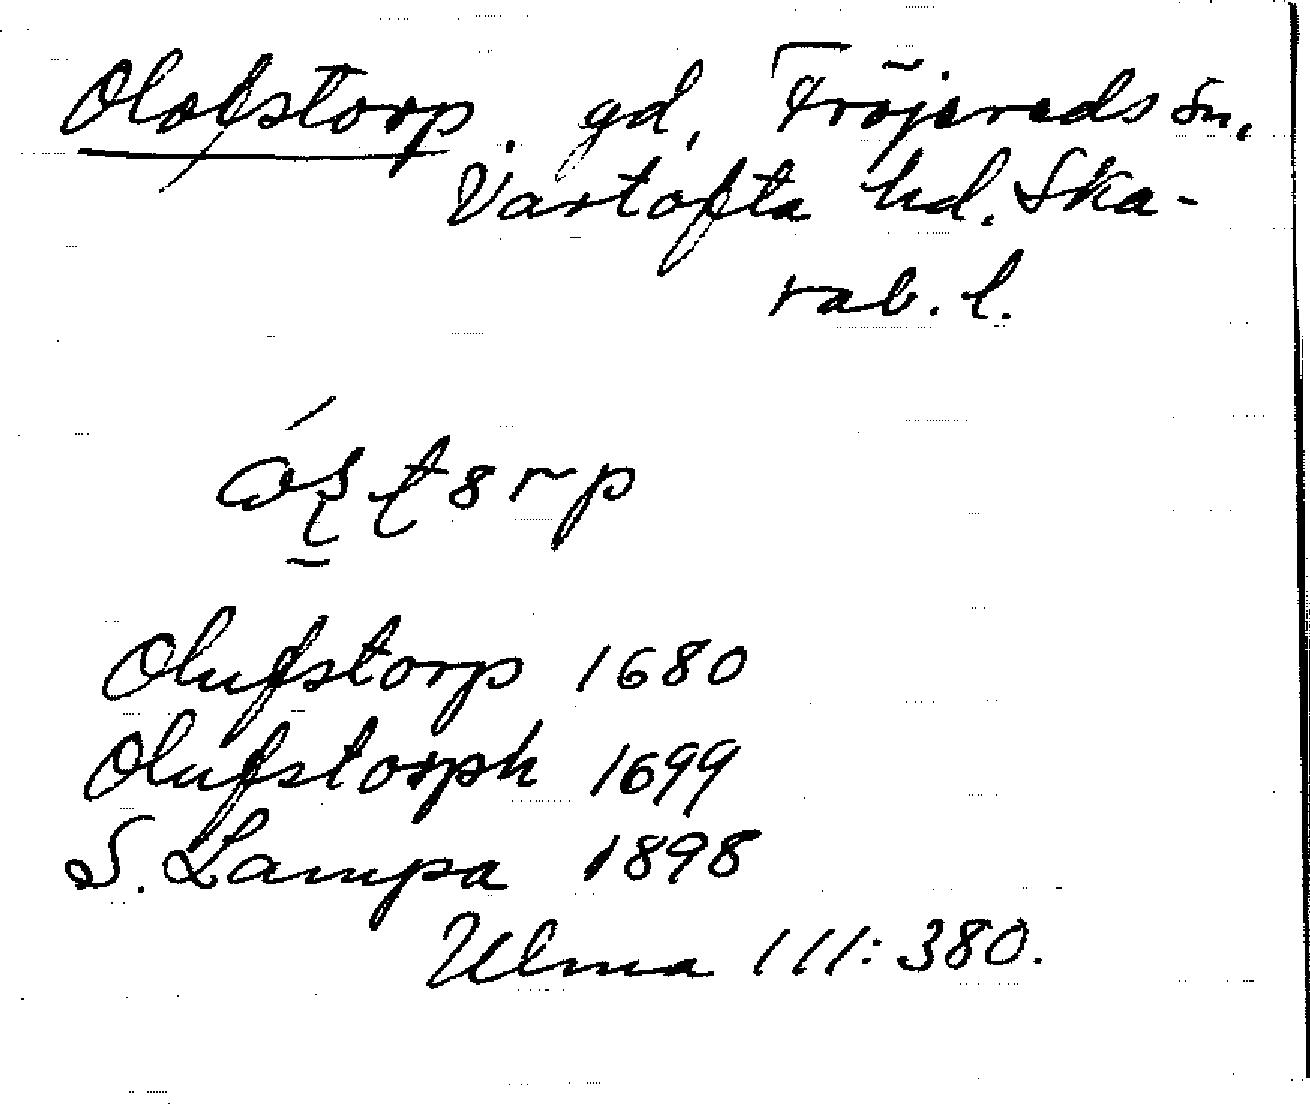 Olofstorp. gd, Fröjereds Sn,
Vartofta hd. Ska-
rab. l.
Olufstorp 1680
Olufstorph 1699
S. Lampa 1898
Ulma 111:380.